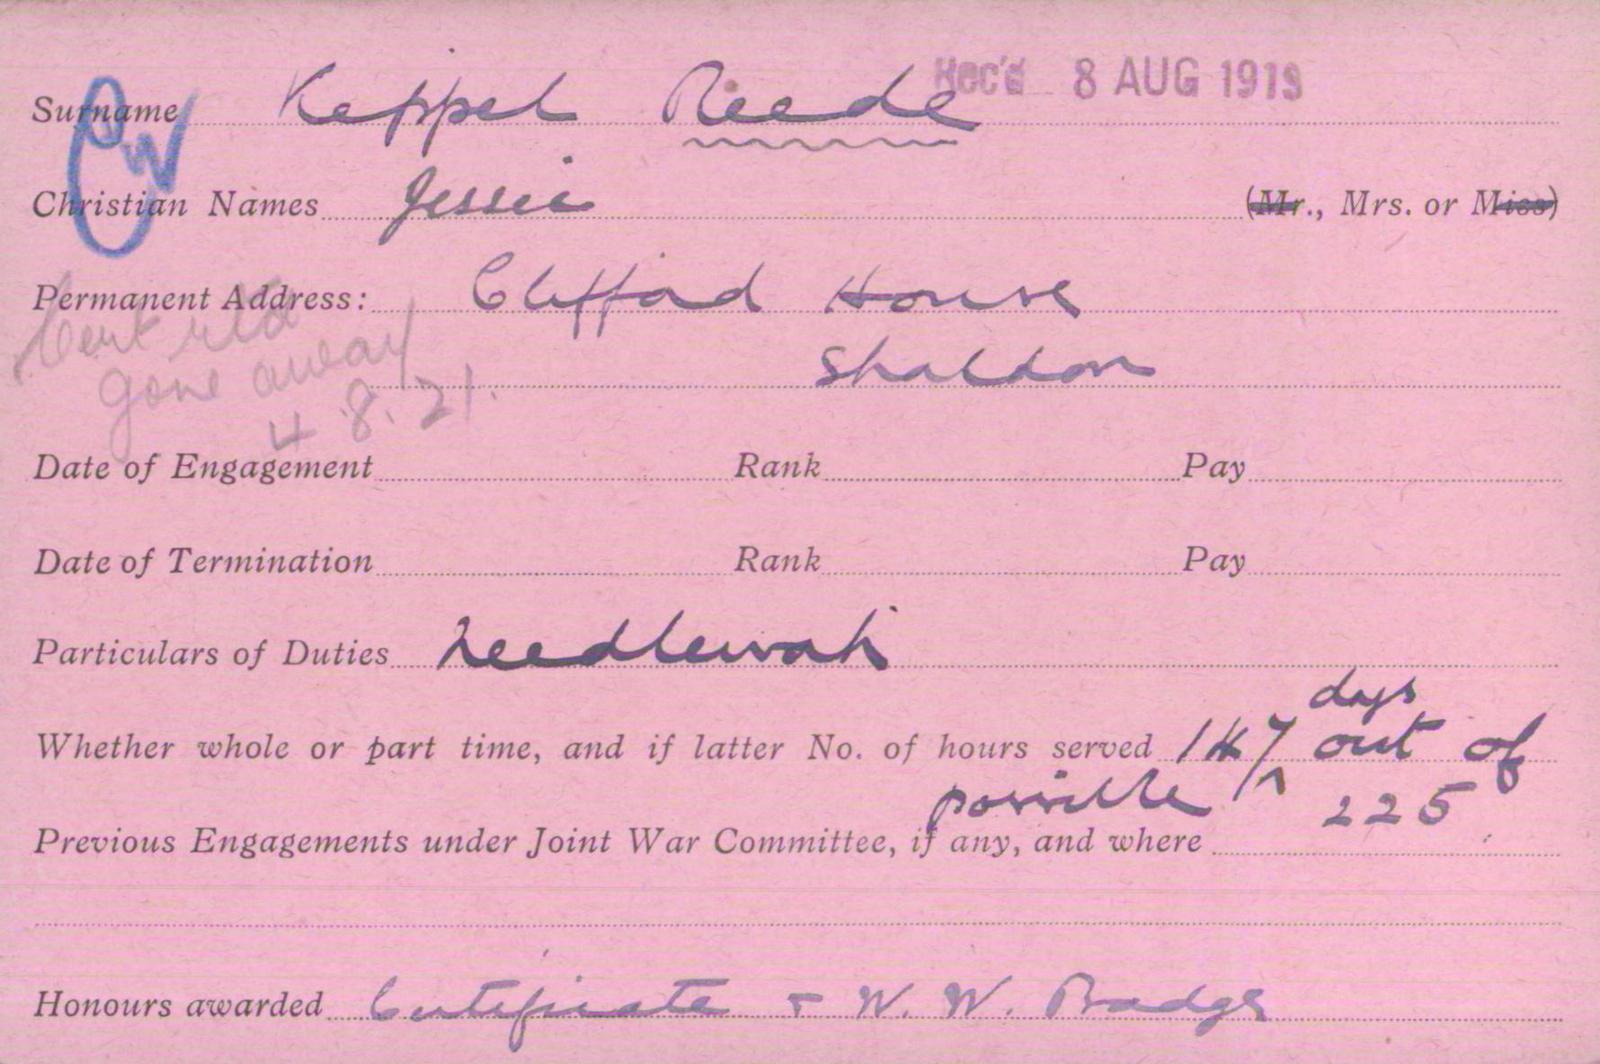 Surname Keppel Reede Rec'd 8 AUG 1919
CW
Christian Names Jessie (Mr., Mrs. or Miss)
Permanent Address: Clifford House
Shaldon
Cert rtd
gone away
4.8.21.
Date of Engagement Rank Pay
Date of Termination Rank Pay
Particulars of Duties Needlework
days
Whether whole or part time, and if latter No. of hours served 147 out of
possible 225
Previous Engagements under Joint War Committee, if any, and where
Honours awarded Certificate + W. W. Badge